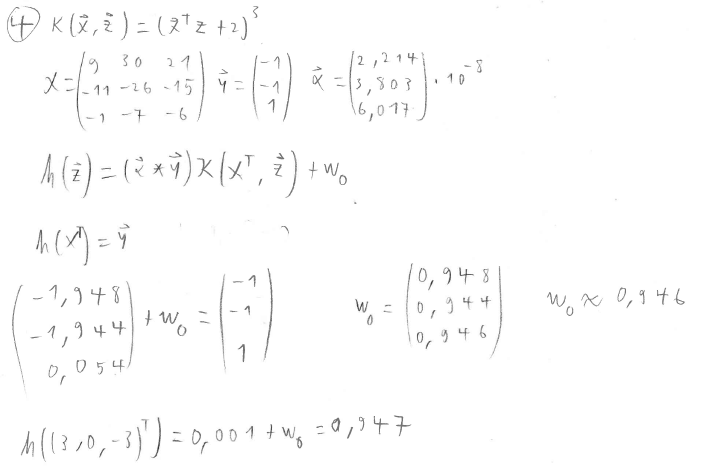 ④ K(x⃗, z⃗) = (x⃗ᵀz + 2)³
X = (9 30 21 / -11 -26 -15 / -1 -7 -6) y⃗ = (-1 / -1 / 1) α⃗ = (2,214 / 3,803 / 6,017) · 10⁻⁸
h(z⃗) = (α⃗ * y⃗) K(Xᵀ, z⃗) + w₀
h(Xᵀ) = y⃗
(-1,948 / -1,944 / 0,054) + w₀ = (-1 / -1 / 1) w₀ = (0,948 / 0,944 / 0,946) w₀ ≈ 0,946
h((3,0,-3)ᵀ) = 0,001 + w₀ = 0,947